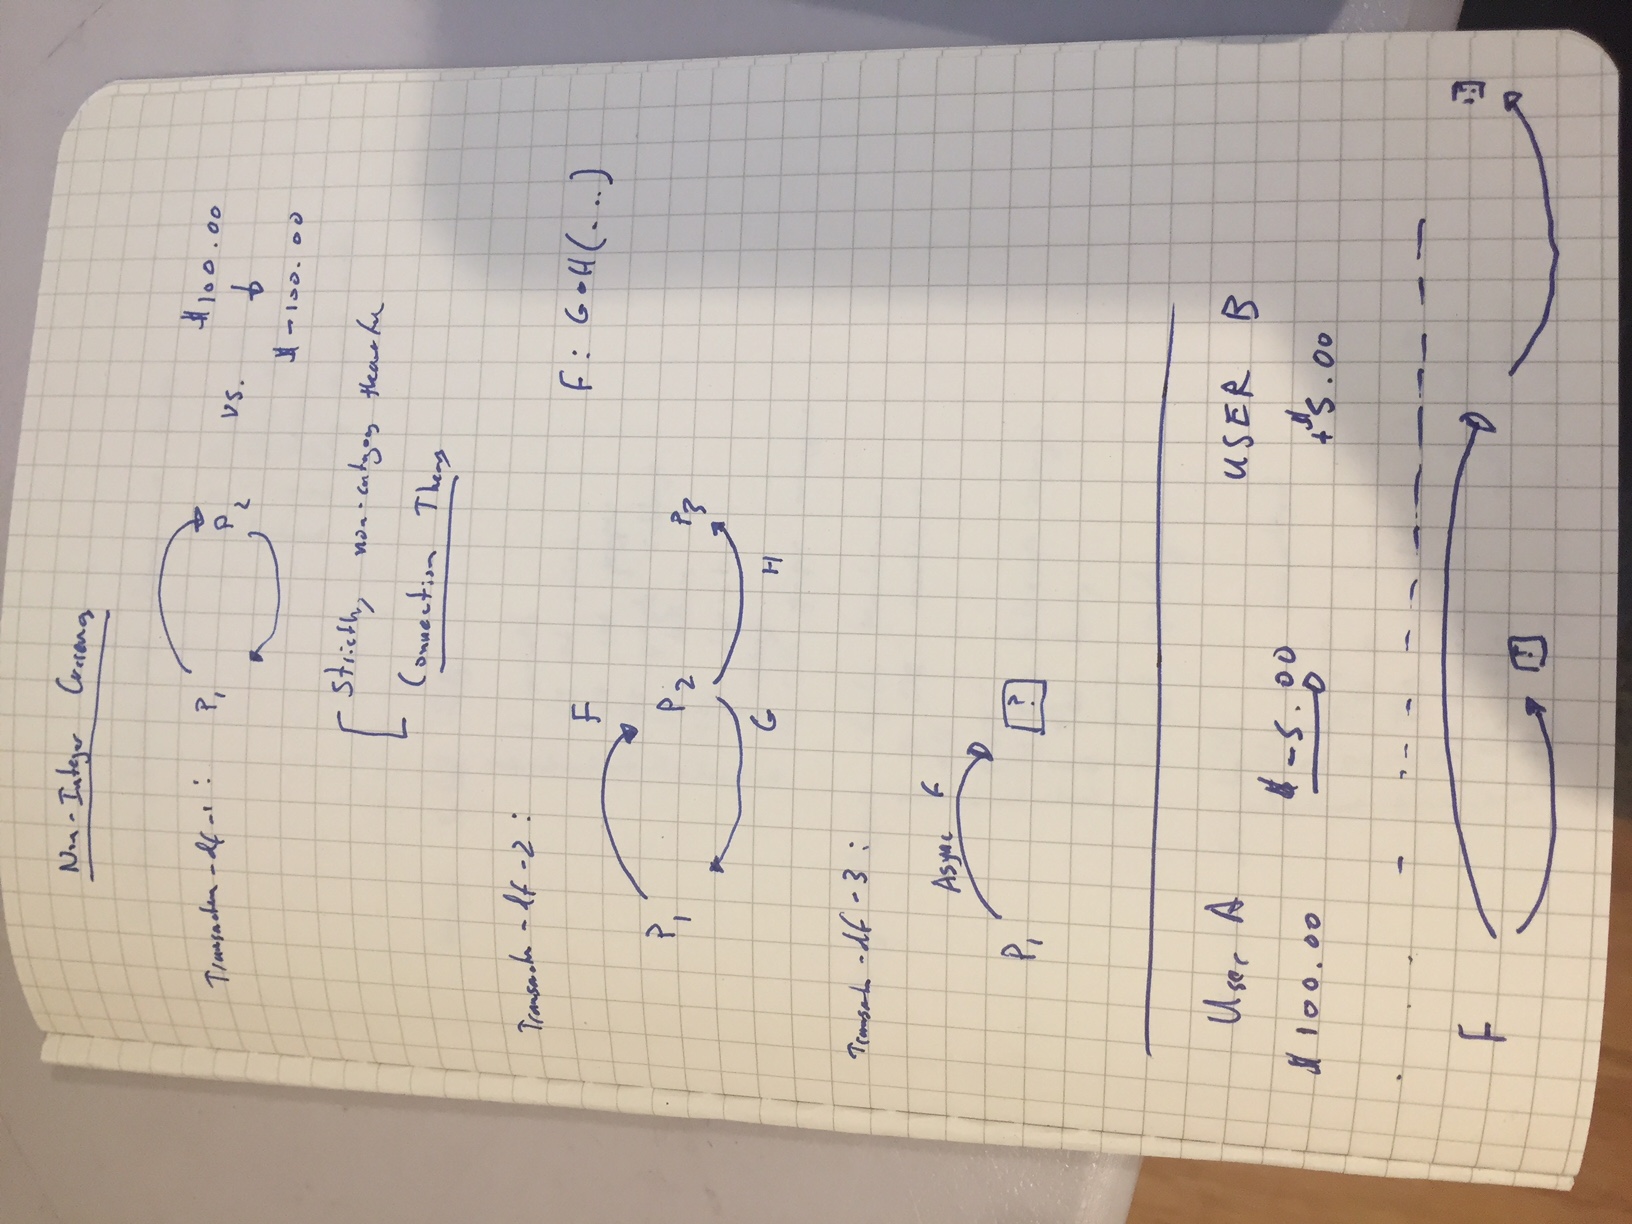 Non-Integer Currency
Transaction-df-1:
P1
P2
vs.
$100.00
$-100.00
Strictly non-category theoretic
Connection Theory
Transactn-df-2:
F
F: G∘H(...)
P1
P2
P3
G
H
Transactn-df-3:
Async F
P1
?
User A
USER B
$-5.00
$100.00
+$5.00
F